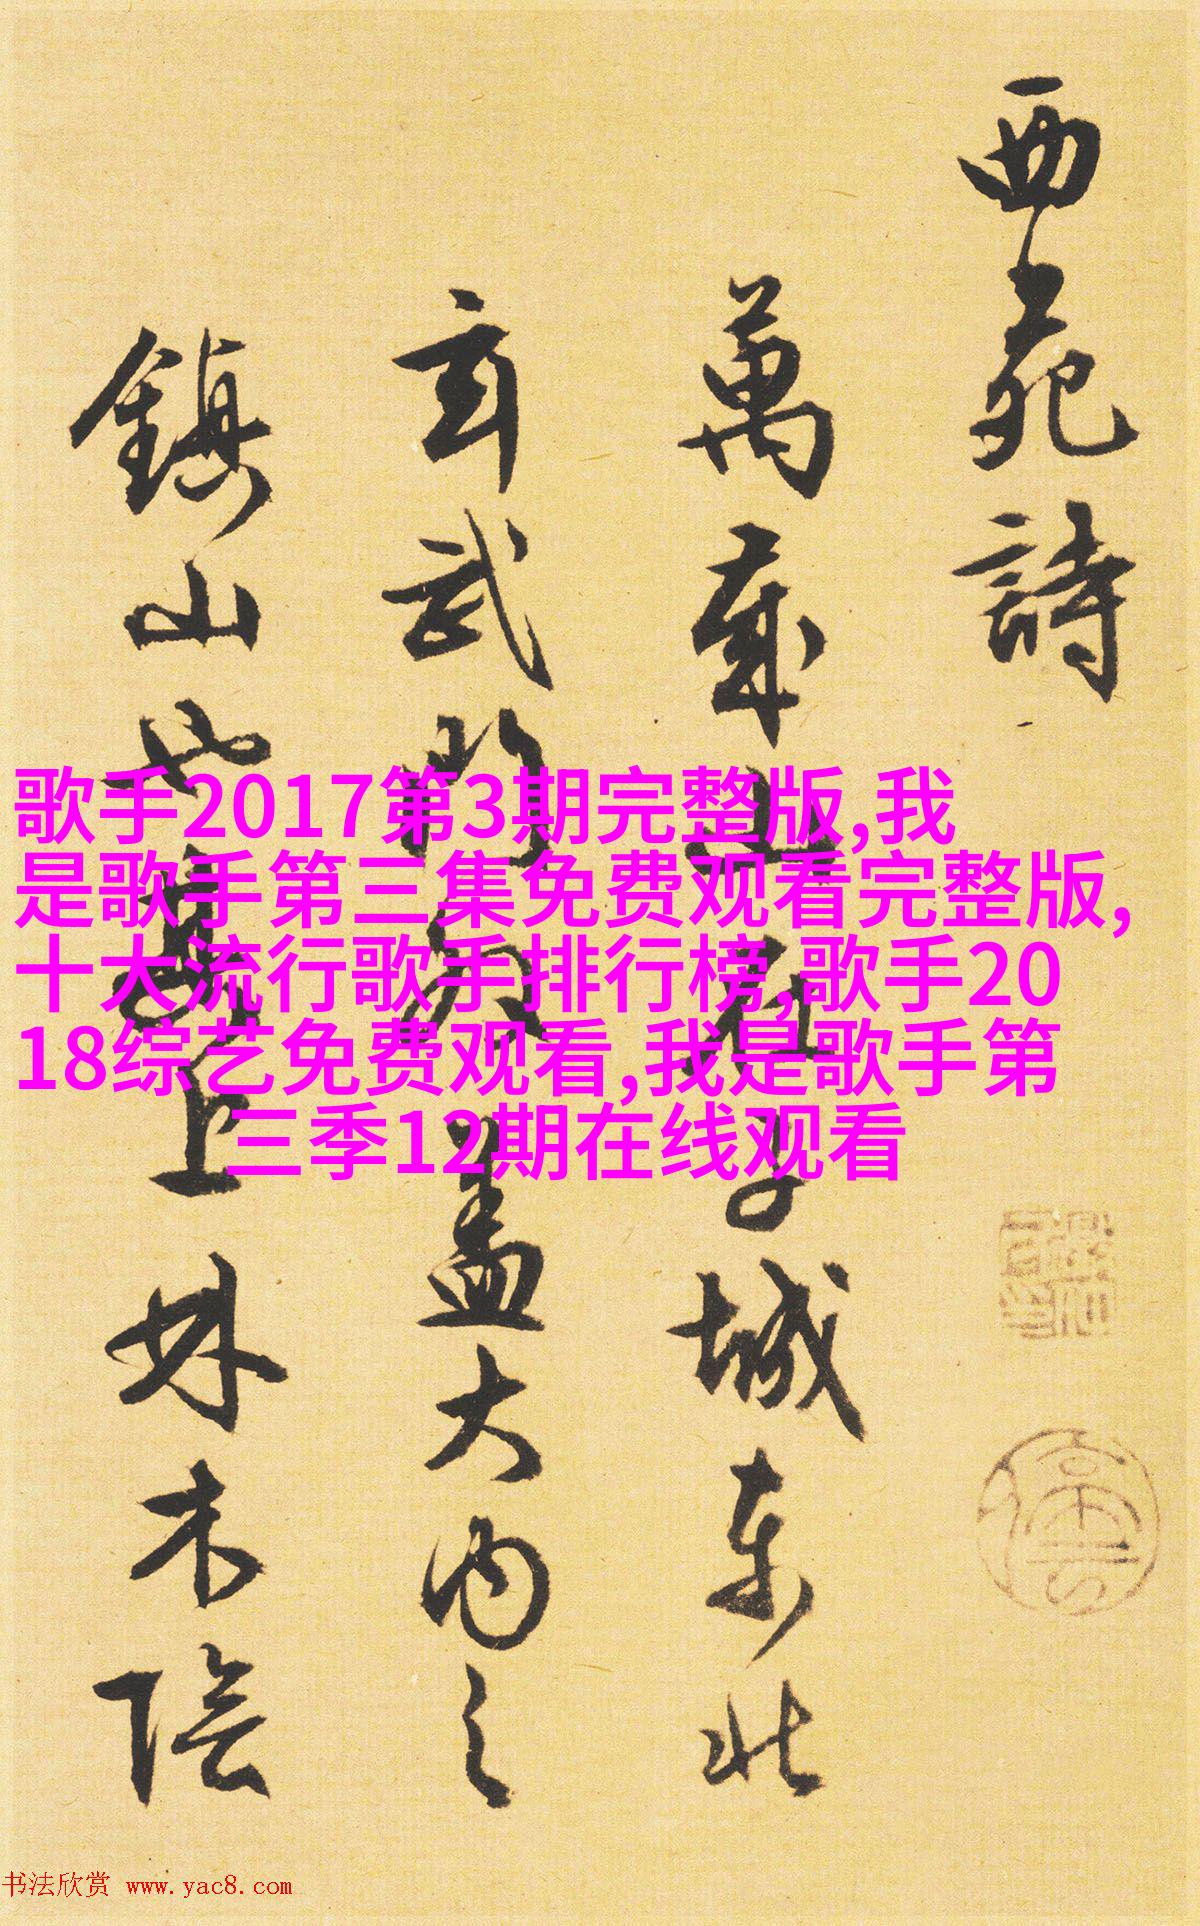 西苑詩
萬歲山在子城東北
玄武門外蓋大内之
鎮山也其上林木陰
歌手2017第3期完整版,我
是歌手第三集免费观看完整版,
十大流行歌手排行榜,歌手20
18综艺免费观看,我是歌手第
三季12期在线观看
书法欣赏 www.yac8.com